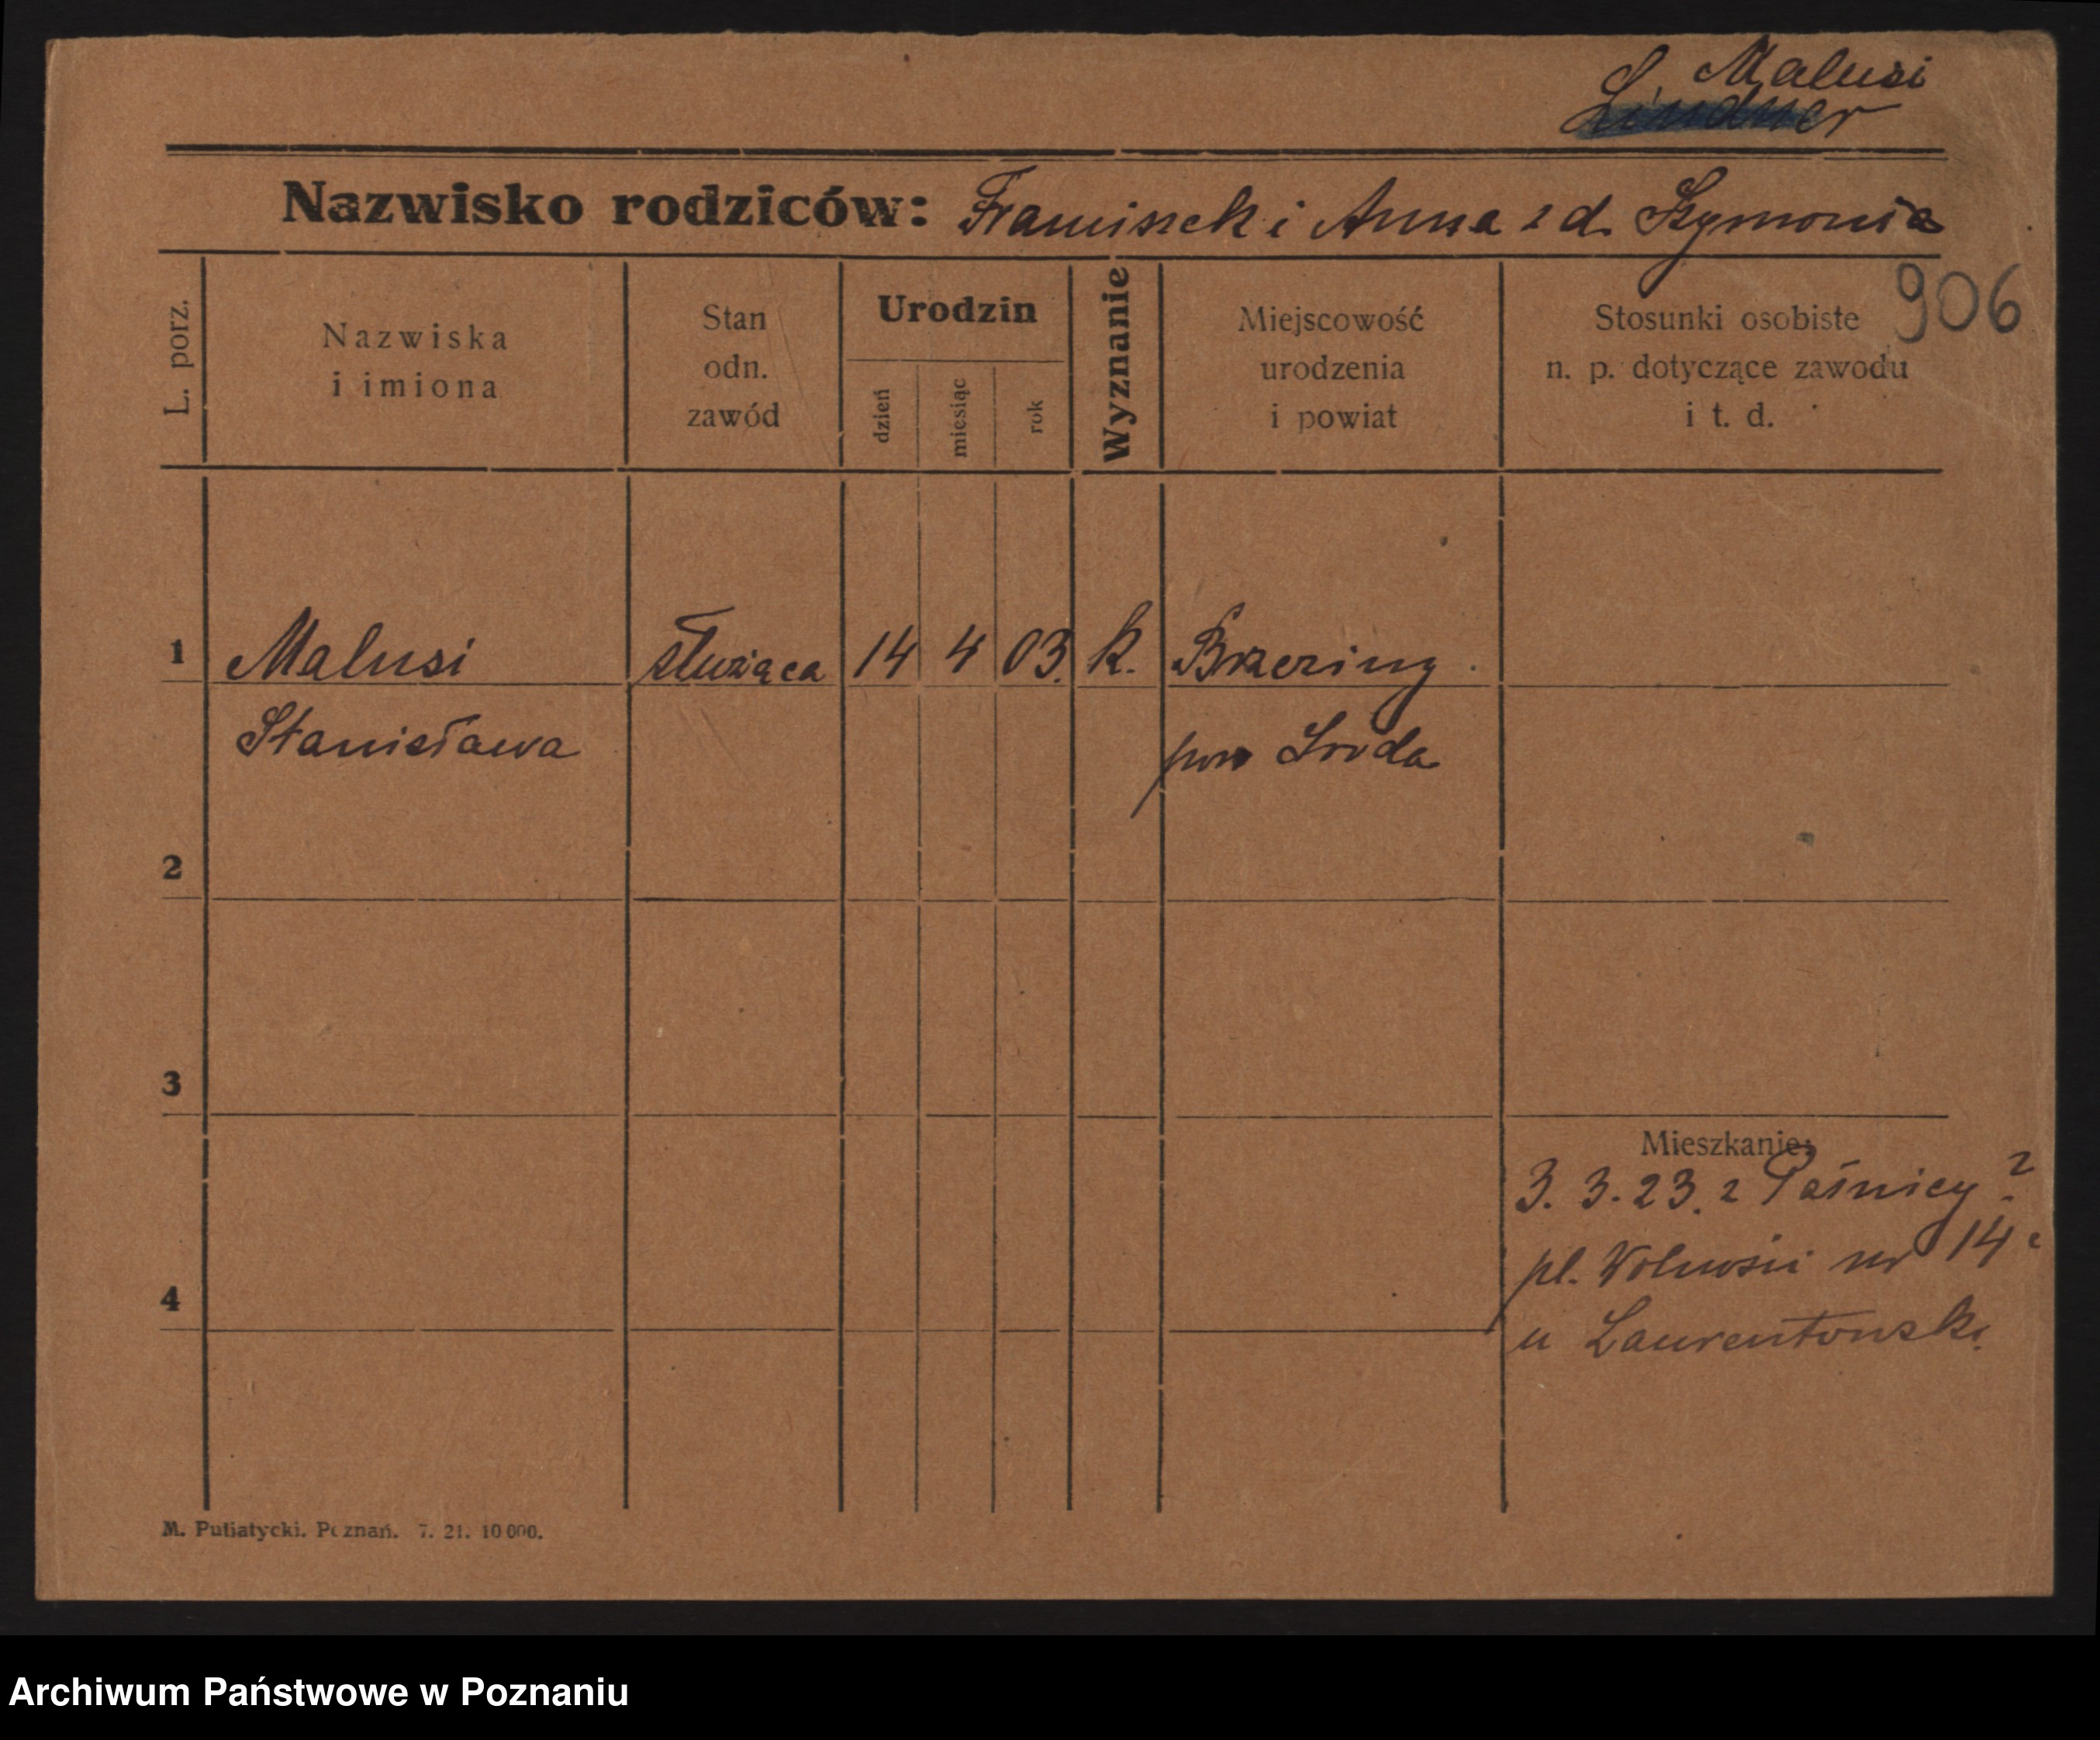 Malusi
Lindner
Nazwisko rodziców: Franciszek i Anna z d. Szymonia
906
L. porz.
Nazwiska
i imiona
Stan
odn.
zawód
Urodzin
dzień
miesiąc
rok
Wyznanie
Miejscowość
urodzenia
i powiat
Stosunki osobiste
n. p. dotyczące zawodu
i t. d.
1 Malusi służąca 14 4 03. k. Brzeziny
Stanisława pow Sroda
2
3
Mieszkanie:
3. 3. 23. z
pl. Wolności nr 14
4
u Laurentowski
M. Putiatycki. Poznań. 7. 21. 10 000.
Archiwum Państwowe w Poznaniu